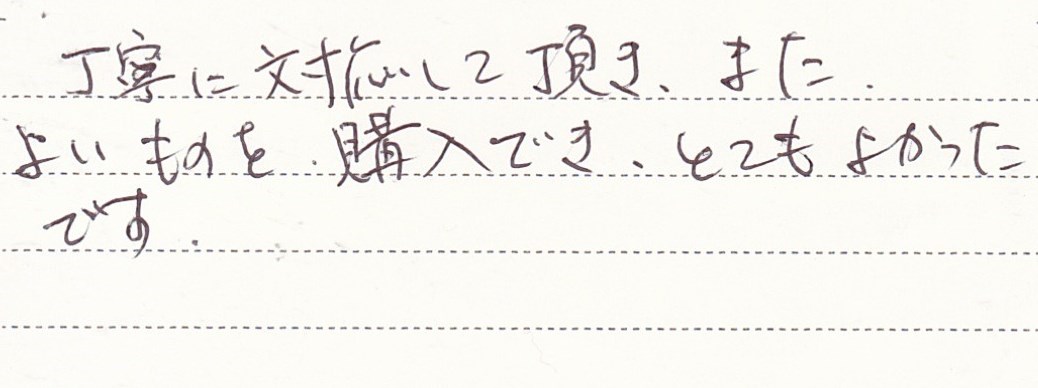 丁寧に対応して頂き、また、
よいものを購入でき、とてもよかった
です。